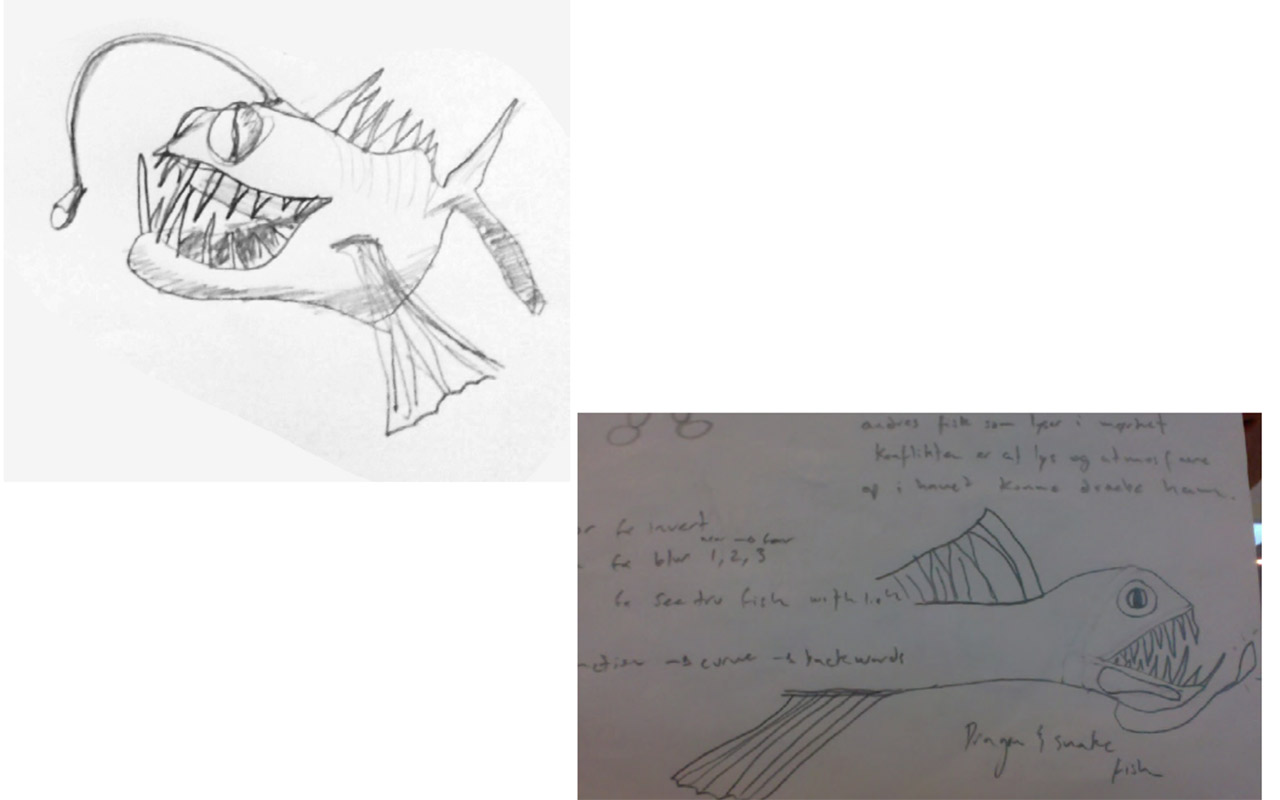 andres fisk som lyser i mørket
konflikten er at lys og atmosfære
op i havet kunne dræbe ham.
fx invert
fx blur 1, 2, 3
fx see tru fish with light
→ curve → backwards
Dragon & snake
fish